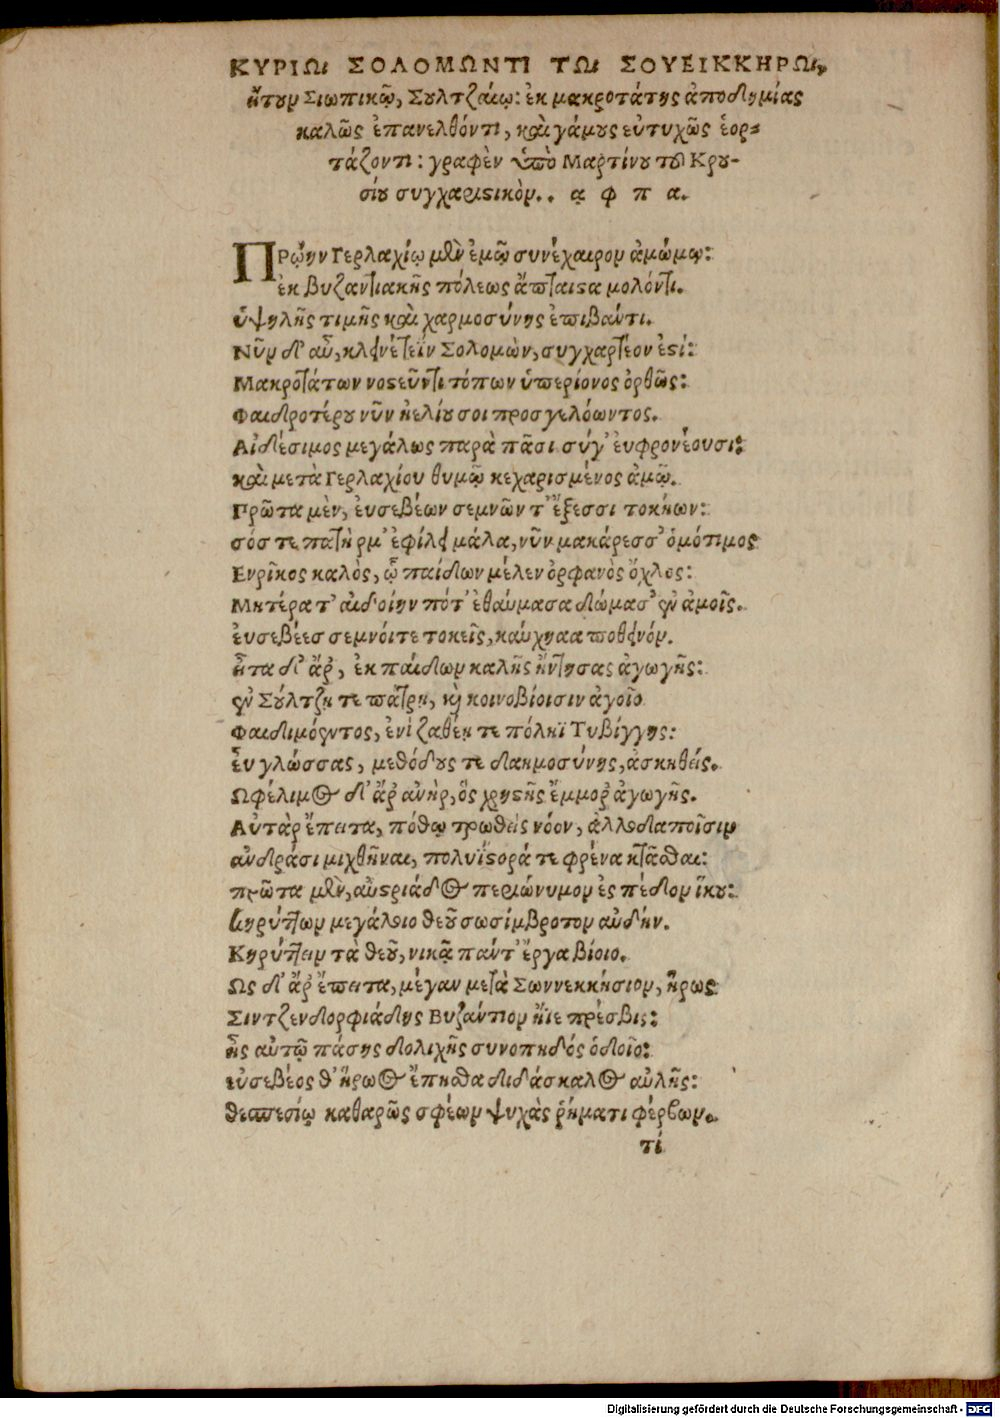 ΚΥΡΙΩι ΣΟΛΟΜΩΝΤΙ ΤΩι ΣΟΥΕΙΚΚΗΡΩι,
ἤτουν Σιωπικῷ, Σουλτζαίῳ: ἐκ μακροτάτης ἀποδημίας
καλῶς ἐπανελθόντι, καὶ γάμους εὐτυχῶς ἑορ-
τάζοντι: γραφὲν ὑπὸ Μαρτίνου τοῦ Κρου-
σίου συγχαριστικὸν. . α φ π α.
Πρώην Γερλαχίῳ μὲν ἐμῷ συνέχαιρον ἀμώμῳ:
ἐκ Βυζαντιακῆς πόλεως ἄπταιστα μολόντι.
ὑψηλῆς τιμῆς καὶ χαρμοσύνης ἐπιβάντι.
Νῦν δ' αὖ, κλεινέ τεῒν Σολομὼν, συγχαρτέον ἐστί:
Μακροτάτων νοστεῦντι τόπων ὑπερίονος ὀρθῶς:
Φαιδροτέρου νῦν ἠελίου σοι προσγελόωντος.
Αἰδέσιμος μεγάλως παρὰ πᾶσι σύγ' ἐυφρονέουσι:
καὶ μετὰ Γερλαχίου θυμῷ κεχαρισμένος ἀμῷ.
Πρῶτα μὲν, ἐυσεβέων σεμνῶν τ' ἔξεσσι τοκήων:
σός τε πατὴρ μ' ἐφίλει μάλα, νῦν μακάρεσσ' ὁμότιμος
Ἐνρῖκος καλὸς, ᾧ παίδων μέλεν ὀρφανὸς ὄχλος:
Μητέρα τ' αἰδοίην πότ' ἐθαύμασα δώμασ' ἐν ἀμοῖς.
ἐυσεβέες σεμνοίτε τοκεῖς, καύχημα ποθεινόν.
εἶτα δ' ἄρ, ἐκ παίδων καλῆς ἤντησας ἀγωγῆς:
ἐν Σούλτζῃ τε πάτρῃ, καὶ κοινοβίοισιν ἀγοῖο
Φαιδιμόεντος, ἐνὶ ζαθέῃ τε πόληϊ Τυβίγγης:
εὖ γλώσσας, μεθόδους τε δαημοσύνης, ἀσκηθείς.
Ὠφέλιμος δ' ἄρ ἀνὴρ, ὃς χρηστῆς ἔμμορ ἀγωγῆς.
Αὐτὰρ ἔπειτα, πόθῳ τρωθεὶς νόον, ἀλλοδαποῖσιν
ἀνδράσι μιχθῆναι, πολυΐστορά τε φρένα κτᾶσθαι:
πρῶτα μὲν, αὐστριάδος περιώνυμον ἐς πέδον ἵκου:
κηρύττων μεγάλοιο θεοῦ σωσίμβροτον αὐδήν.
Κηρύττειν τὰ θεοῦ, νικᾷ πάντ' ἔργα βίοιο.
Ὡς δ' ἄρ ἔπειτα, μέγαν μετὰ Σωννεκκήσιον, ἥρως
Σιντζενδορφιάδης Βυζάντιον ἤιε πρέσβις:
ᾖς αὐτῷ πάσης δολιχῆς συνοπηδός ὁδοῖο:
εὐσεβέος θ' ἥρωος ἔπησθα διδάσκαλος αὐλῆς:
θεσπεσίῳ καθαρῶς σφέων ψυχὰς ῥήματι φέρβων.
τί
Digitalisierung gefördert durch die Deutsche Forschungsgemeinschaft - DFG